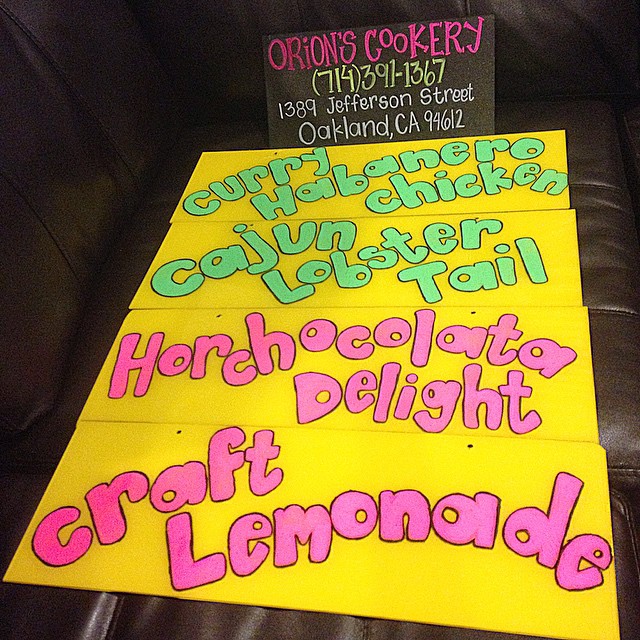 ORION'S COOKERY
(714)391-1367
1389 Jefferson Street
Oakland, CA 94612
curry
Habanero
chicken
cajun
Lobster
Tail
Horchocolata
Delight
craft
Lemonade